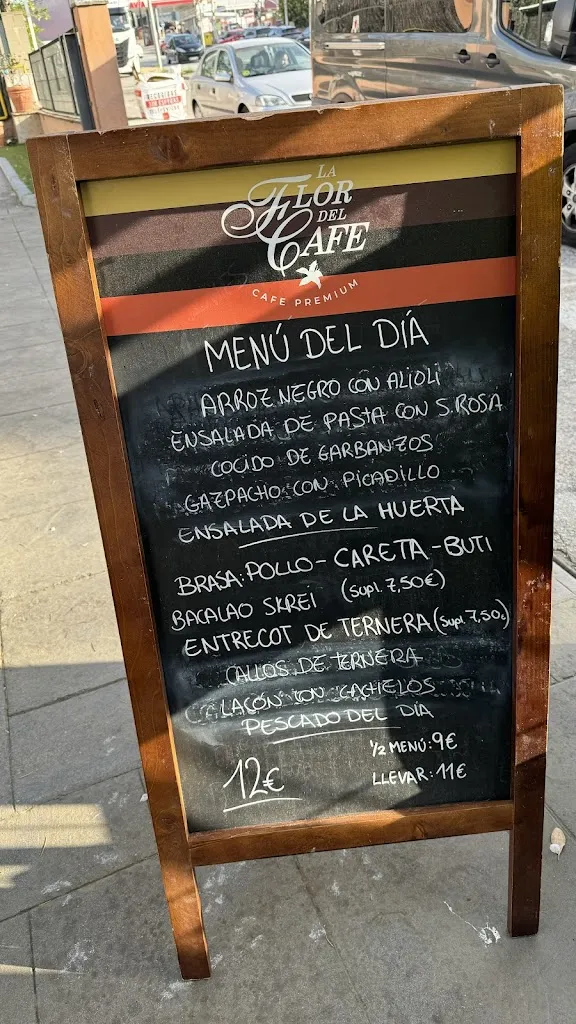 LA
FLOR
DEL
CAFE
CAFE PREMIUM
MENÚ DEL DÍÁ
ARROZ NEGRO CON ALIOLI
ENSALADA DE PASTA CON S.ROSA
COCIDO DE GARBANZOS
GAZPACHO CON PICADILLO
ENSALADA DE LA HUERTA
BRASA: POLLO - CARETA - BUTI
BACALAO SKREI (Supl. 7,50€)
ENTRECOT DE TERNERA (supl. 7,50€)
CALLOS DE TERNERA
LACÓN CON CACHELOS
PESCADO DEL DÍA
12€
1/2 MENÚ: 9€
LLEVAR: 11€